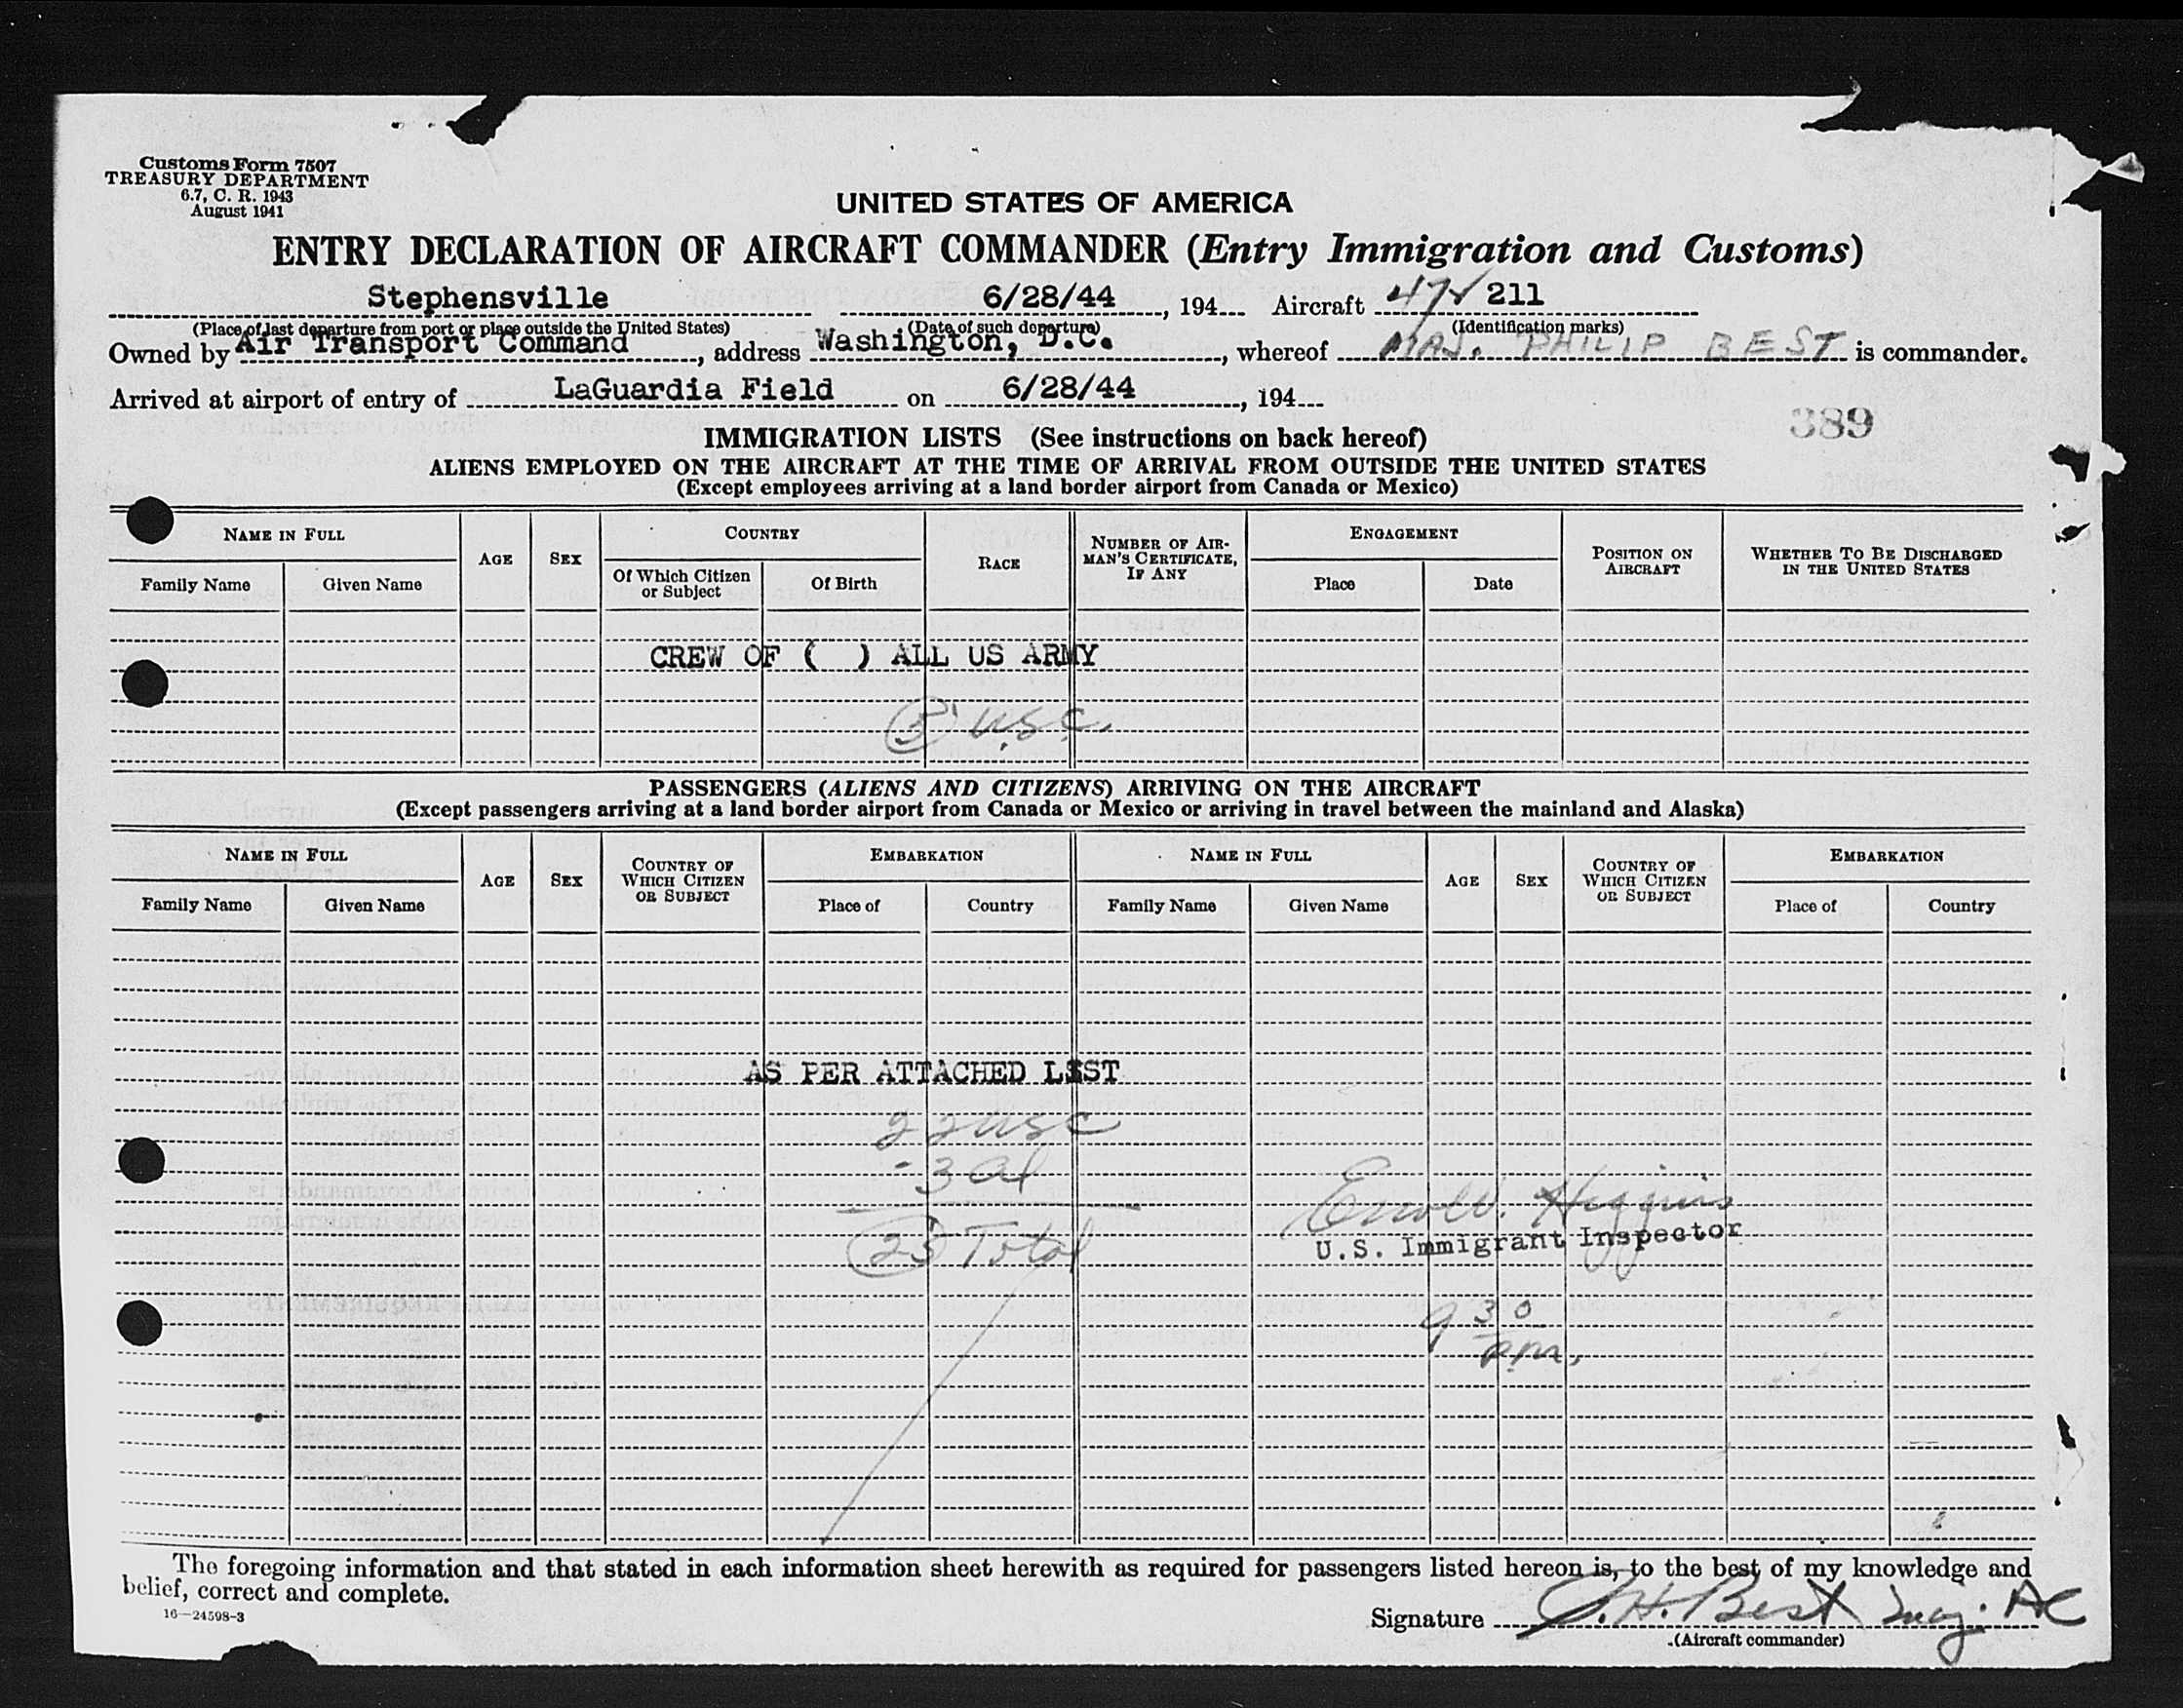 Customs Form 7507
TREASURY DEPARTMENT
6.7, C. R. 1943
August 1941
UNITED STATES OF AMERICA
ENTRY DECLARATION OF AIRCRAFT COMMANDER (Entry Immigration and Customs)
Stephensville 6/28/44, 194 Aircraft 211
(Place of last departure from port or place outside the United States) (Date of such departure) (Identification marks)
Owned by Air Transport Command, address Washington, D.C., whereof MAJ. PHILIP BEST is commander.
Arrived at airport of entry of LaGuardia Field on 6/28/44, 194
389
IMMIGRATION LISTS (See instructions on back hereof)
ALIENS EMPLOYED ON THE AIRCRAFT AT THE TIME OF ARRIVAL FROM OUTSIDE THE UNITED STATES
(Except employees arriving at a land border airport from Canada or Mexico)
NAME IN FULL AGE SEX COUNTRY RACE NUMBER OF AIR-MAN'S CERTIFICATE, IF ANY ENGAGEMENT POSITION ON AIRCRAFT WHETHER TO BE DISCHARGED IN THE UNITED STATES
Family Name Given Name Of Which Citizen or Subject Of Birth Place Date
CREW OF ( ) ALL US ARMY
5 u.s.c.
PASSENGERS (ALIENS AND CITIZENS) ARRIVING ON THE AIRCRAFT
(Except passengers arriving at a land border airport from Canada or Mexico or arriving in travel between the mainland and Alaska)
NAME IN FULL AGE SEX COUNTRY OF WHICH CITIZEN OR SUBJECT EMBARKATION NAME IN FULL AGE SEX COUNTRY OF WHICH CITIZEN OR SUBJECT EMBARKATION
Family Name Given Name Place of Country Family Name Given Name Place of Country
AS PER ATTACHED LIST
22 usc
- 3 al
25 Total
Higgins
U.S. Immigrant Inspector
9 30
pm.
The foregoing information and that stated in each information sheet herewith as required for passengers listed hereon is, to the best of my knowledge and
belief, correct and complete.
16—24598-3
Signature P.H. Best Maj. AC
(Aircraft commander)